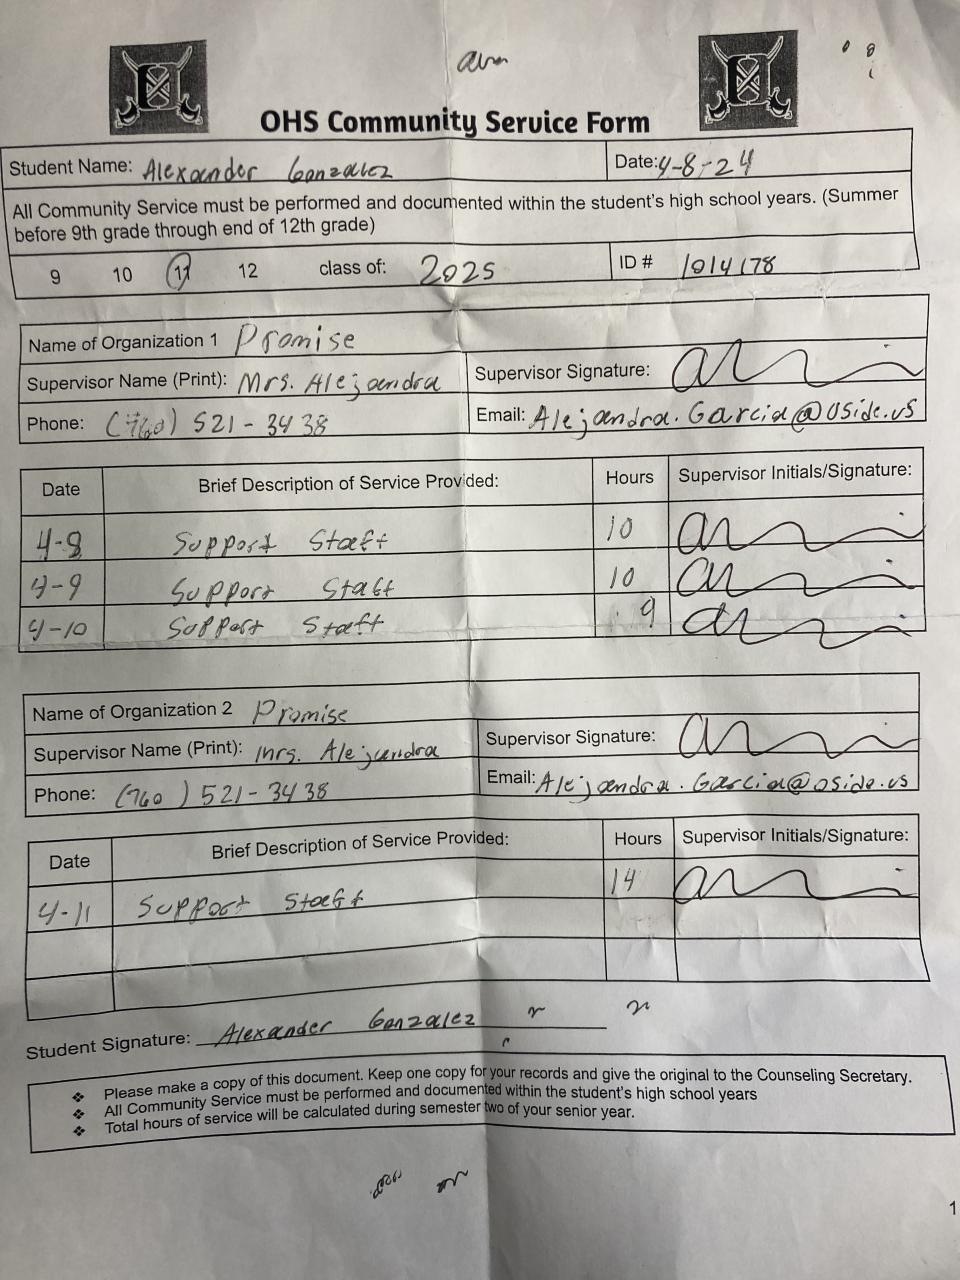 OHS Community Service Form
Student Name: Alexander Gonzalez Date: 4-8-24
All Community Service must be performed and documented within the student's high school years. (Summer
before 9th grade through end of 12th grade)
9 10 11 12 class of: 2025 ID # 1014178
Name of Organization 1 Promise
Supervisor Name (Print): Mrs. Alejandra Supervisor Signature:
Phone: (760) 521-3438 Email: Alejandra.Garcia@oside.us
Date Brief Description of Service Provided: Hours Supervisor Initials/Signature:
4-8 Support Staff 10
4-9 Support Staff 10
4-10 Support Staff 9
Name of Organization 2 Promise
Supervisor Name (Print): Mrs. Alejandra Supervisor Signature:
Phone: (760) 521-3438 Email: Alejandra.Garcia@oside.us
Date Brief Description of Service Provided: Hours Supervisor Initials/Signature:
4-11 Support Staff 14
Student Signature: Alexander Gonzalez
❖ Please make a copy of this document. Keep one copy for your records and give the original to the Counseling Secretary.
❖ All Community Service must be performed and documented within the student's high school years
❖ Total hours of service will be calculated during semester two of your senior year.
1